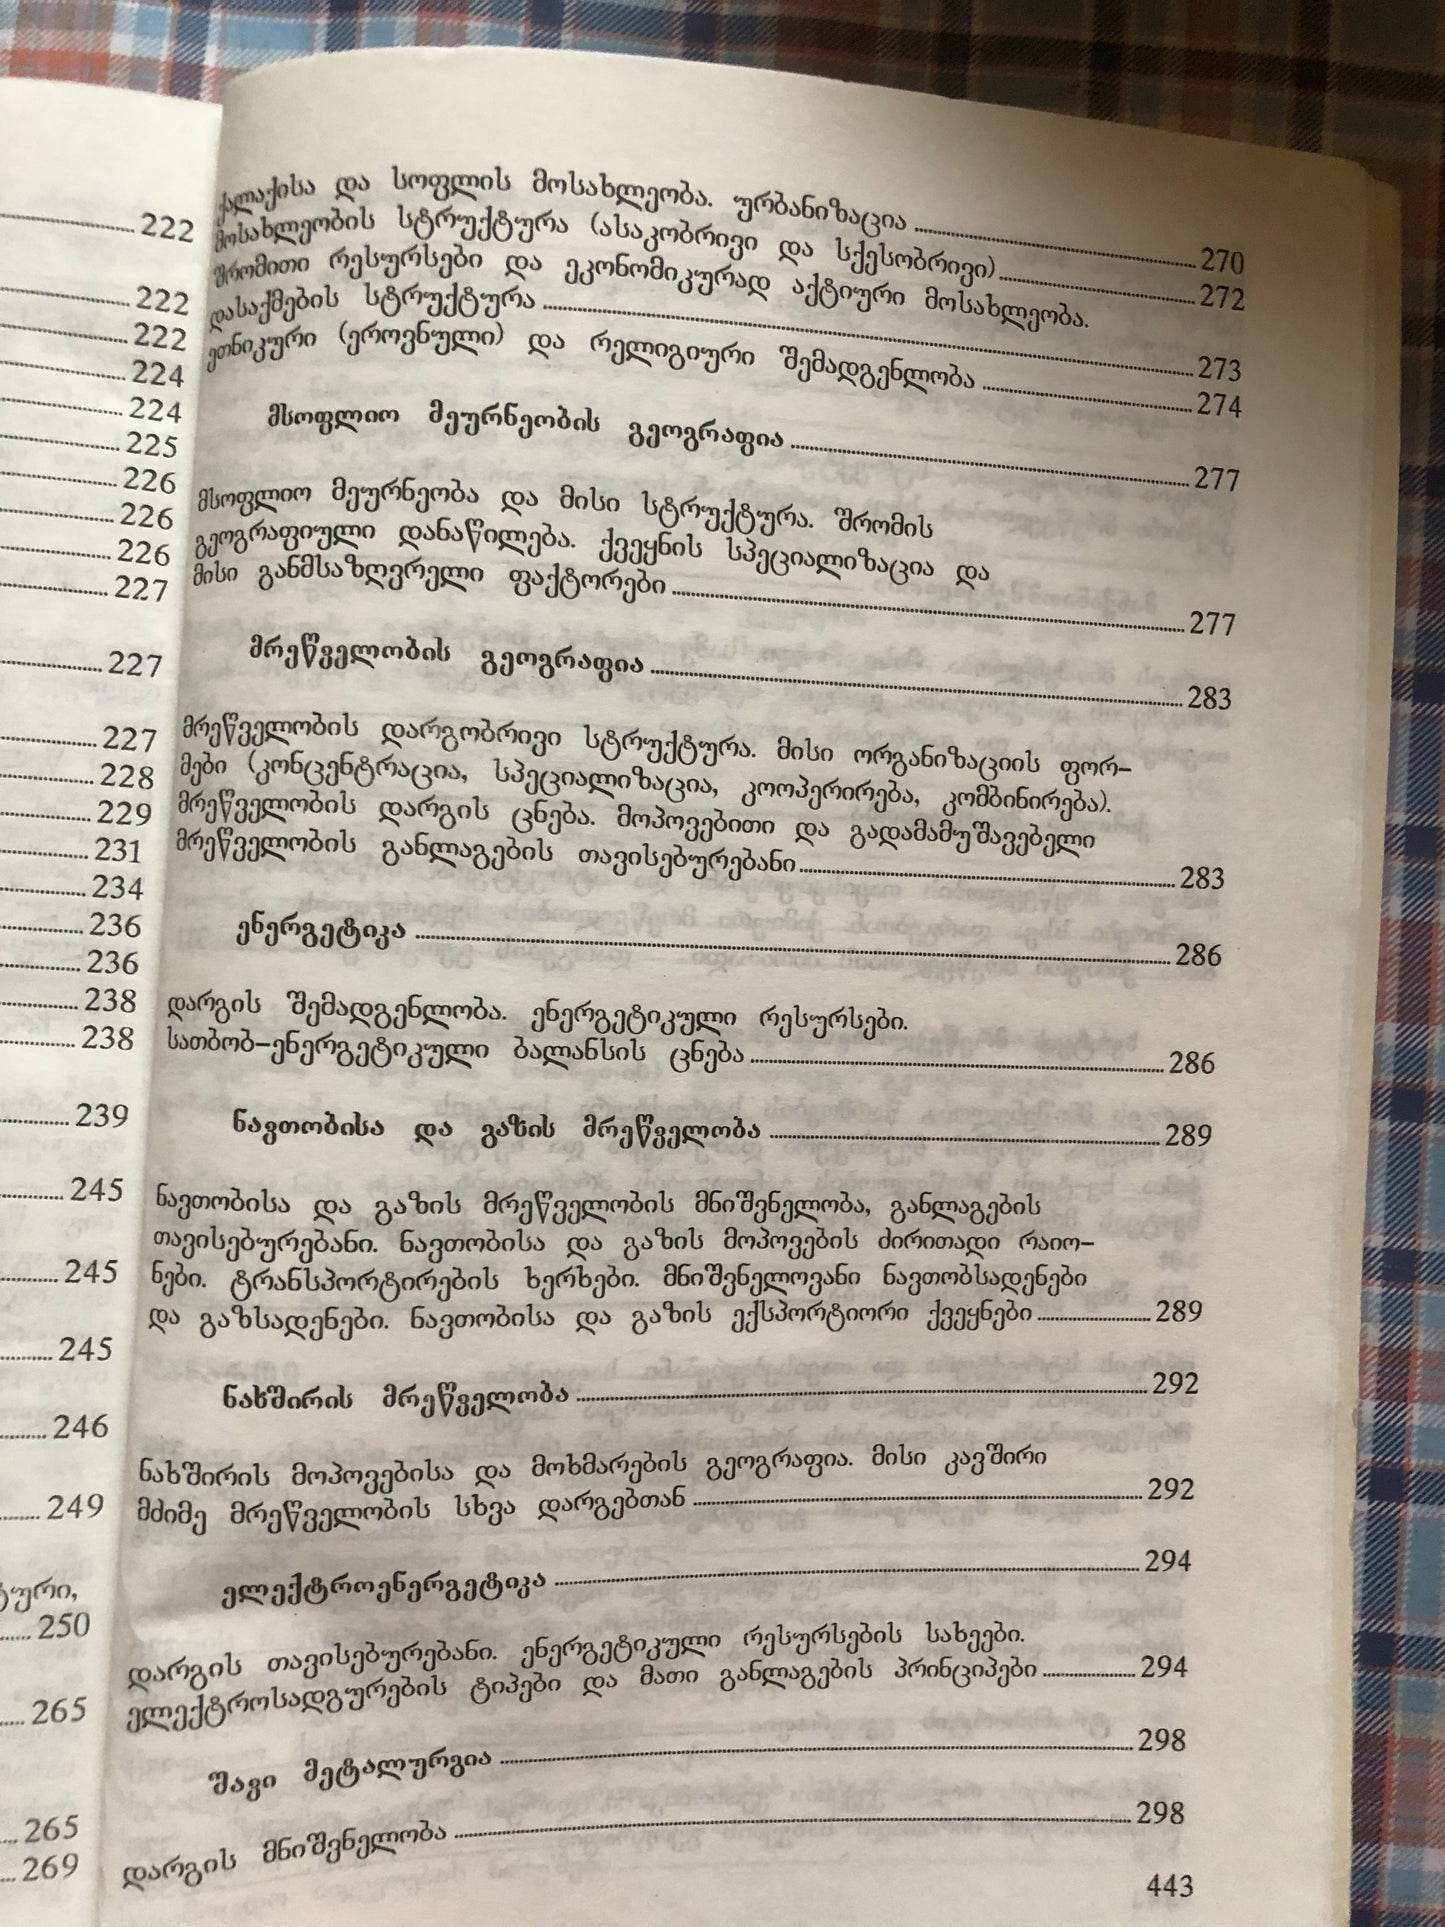 222
222
222
224
224
225
226
226
226
227
227
227
228
229
231
234
236
236
238
238
239
245
245
245
246
249
ტური,
250
265
265
269
ქალაქისა და სოფლის მოსახლეობა. ურბანიზაცია 270
მოსახლეობის სტრუქტურა (ასაკობრივი და სქესობრივი) 272
შრომითი რესურსები და ეკონომიკურად აქტიური მოსახლეობა.
დასაქმების სტრუქტურა 273
ეთნიკური (ეროვნული) და რელიგიური შემადგენლობა 274
მსოფლიო მეურნეობის გეოგრაფია 277
მსოფლიო მეურნეობა და მისი სტრუქტურა. შრომის
გეოგრაფიული დანაწილება. ქვეყნის სპეციალიზაცია და
მისი განმსაზღვრელი ფაქტორები 277
მრეწველობის გეოგრაფია 283
მრეწველობის დარგობრივი სტრუქტურა. მისი ორგანიზაციის ფორ–
მები (კონცენტრაცია, სპეციალიზაცია, კოოპერირება, კომბინირება).
მრეწველობის დარგის ცნება. მოპოვებითი და გადამამუშავებელი
მრეწველობის განლაგების თავისებურებანი 283
ენერგეტიკა 286
დარგის შემადგენლობა. ენერგეტიკული რესურსები.
სათბობ–ენერგეტიკული ბალანსის ცნება 286
ნავთობისა და გაზის მრეწველობა 289
ნავთობისა და გაზის მრეწველობის მნიშვნელობა, განლაგების
თავისებურებანი. ნავთობისა და გაზის მოპოვების ძირითადი რაიო–
ნები. ტრანსპორტირების ხერხები. მნიშვნელოვანი ნავთობსადენები
და გაზსადენები. ნავთობისა და გაზის ექსპორტიორი ქვეყნები 289
ნახშირის მრეწველობა 292
ნახშირის მოპოვებისა და მოხმარების გეოგრაფია. მისი კავშირი
მძიმე მრეწველობის სხვა დარგებთან 292
ელექტროენერგეტიკა 294
დარგის თავისებურებანი. ენერგეტიკული რესურსების სახეები.
ელექტროსადგურების ტიპები და მათი განლაგების პრინციპები 294
შავი მეტალურგია 298
დარგის მნიშვნელობა 298
443